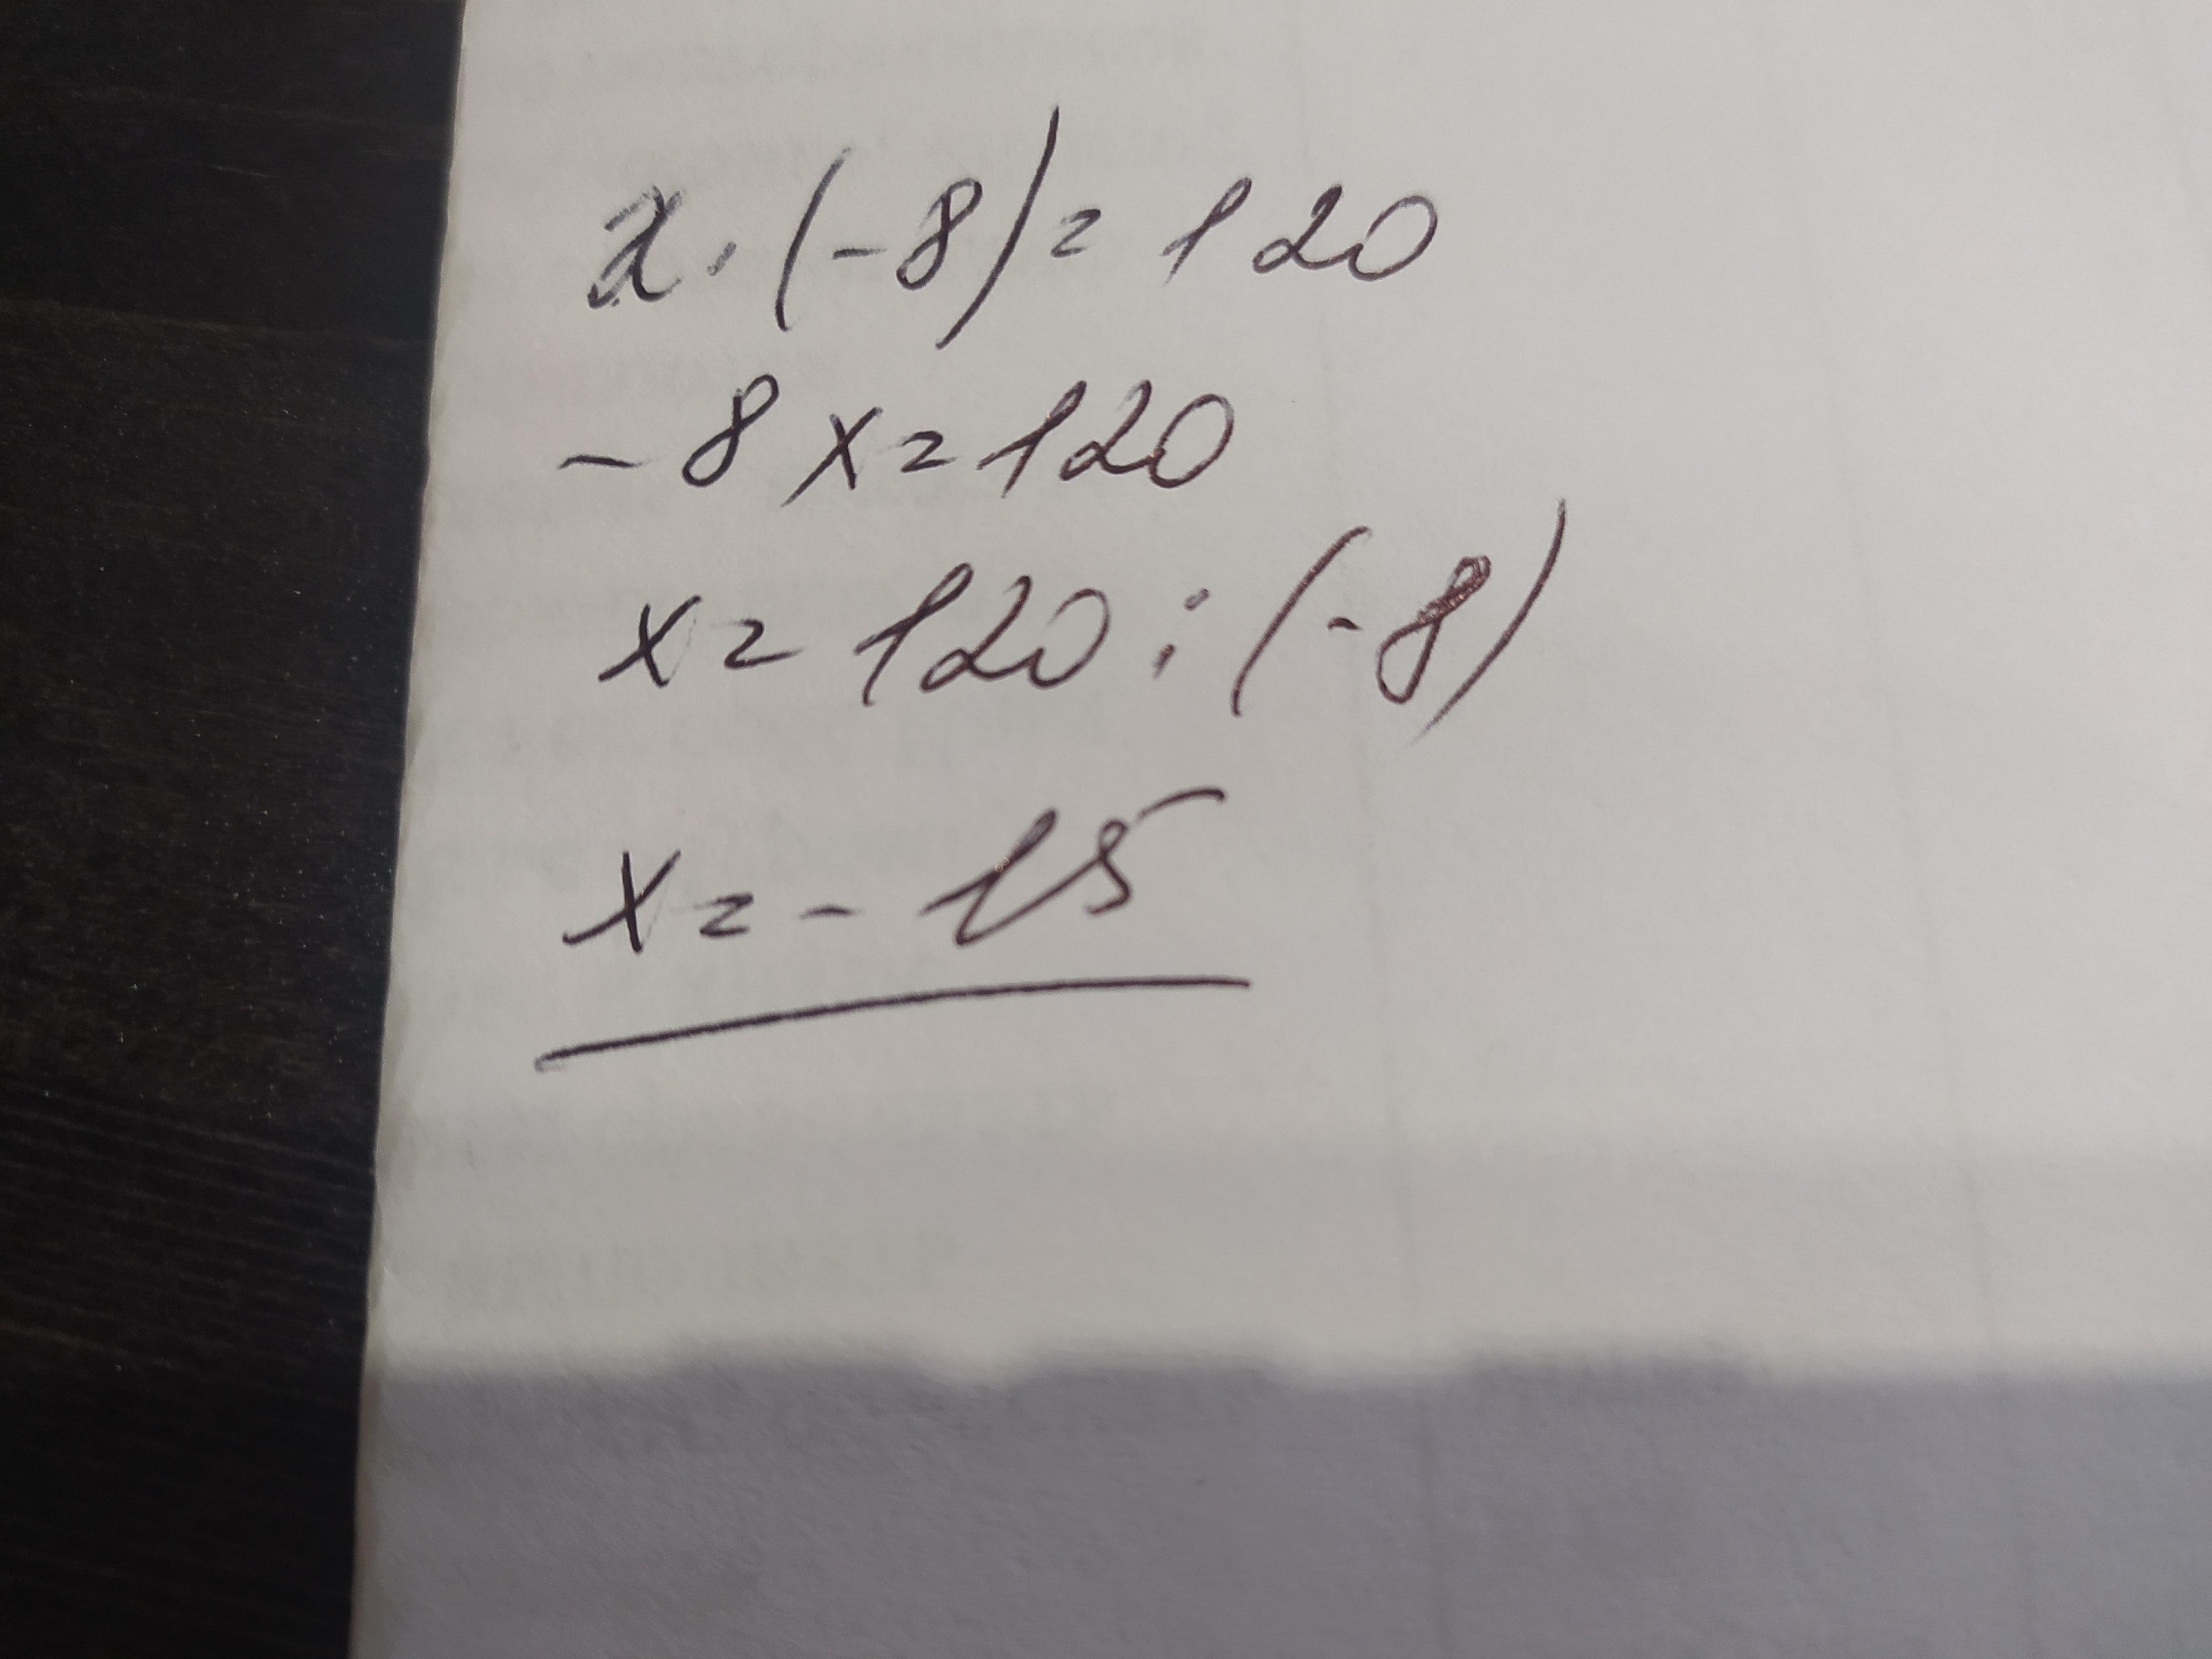 x · (-8) = 120
-8x = 120
x = 120 : (-8)
x = -15